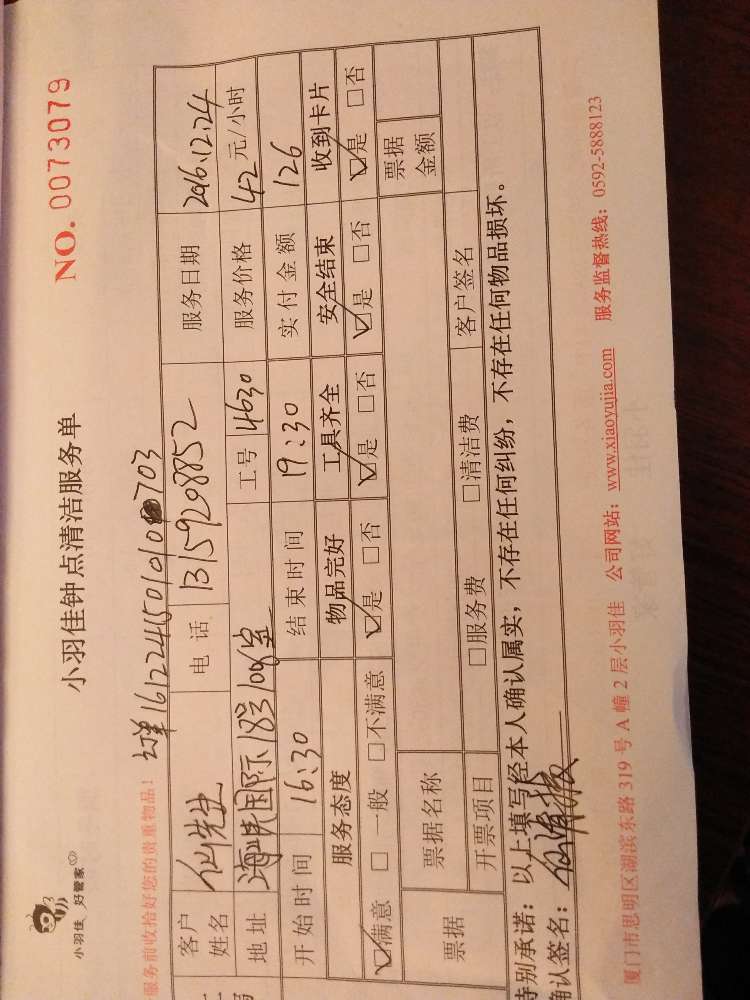 小羽佳 好管家
小羽佳钟点清洁服务单
NO. 0073079
服务前收拾好您的贵重物品!
订单16122415010100703
客户姓名 仙先生 电话 13159208852 服务日期 2016.12.24
地址 海峡国际18号 109室 工号 4630 服务价格 42 元/小时
开始时间 16:30 结束时间 19:30 实付金额 126
服务态度 物品完好 工具齐全 安全结束 收到卡片
☑满意 □一般 □不满意 ☑是 □否 ☑是 □否 ☑是 □否 ☑是 □否
票据 票据名称 票据金额
开票项目 □服务费 □清洁费 客户签名
特别承诺:以上填写经本人确认属实,不存在任何纠纷,不存在任何物品损坏。
确认签名:
厦门市思明区湖滨东路 319 号 A 幢 2 层小羽佳 公司网站:www.xiaoyujia.com 服务监督热线:0592-5888123